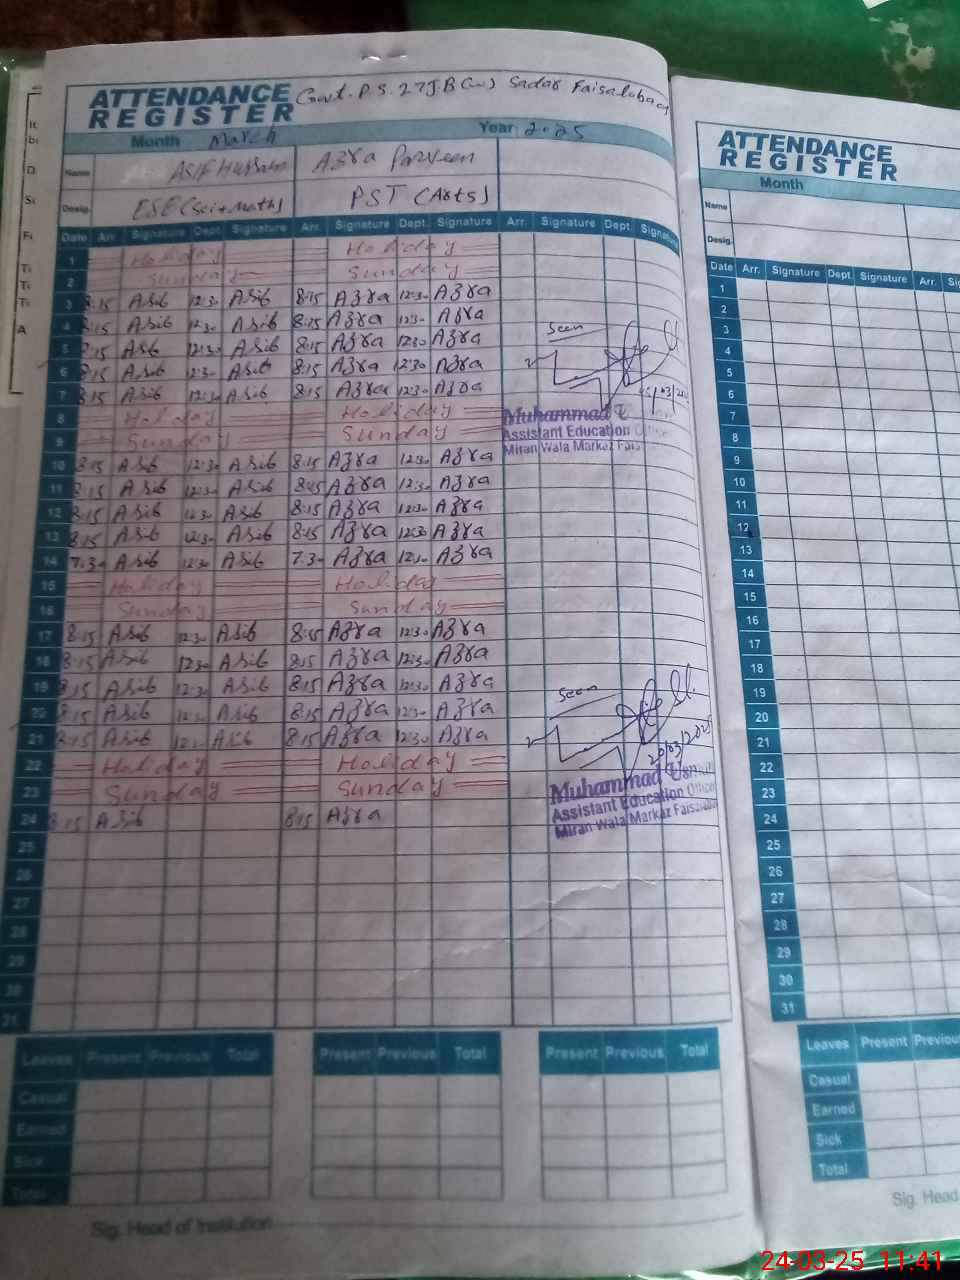 ATTENDANCE REGISTER Govt. P.S. 27J.B(w) Sadar Faisalabad
Month March Year 2025
Name Asif Hussain Azra Parveen
Desig. ESE(Sci+Math) PST (Arts)
Date Arr. Signature Dept. Signature Arr. Signature Dept. Signature Arr. Signature Dept. Signature
1 Holiday Holiday
2 Sunday Sunday
3 8:15 Asib 12:30 Asib 8:15 Azra 12:30 Azra
4 8:15 Asib 12:30 Asib 8:15 Azra 12:30 Azra
5 8:15 Asib 12:30 Asib 8:15 Azra 12:30 Azra
6 8:15 Asib 12:30 Asib 8:15 Azra 12:30 Azra
7 8:15 Asib 12:30 Asib 8:15 Azra 12:30 Azra
8 Holiday Holiday
9 Sunday Sunday
10 8:15 Asib 12:30 Asib 8:15 Azra 12:30 Azra
11 8:15 Asib 12:30 Asib 8:15 Azra 12:30 Azra
12 8:15 Asib 12:30 Asib 8:15 Azra 12:30 Azra
13 8:15 Asib 12:30 Asib 8:15 Azra 12:30 Azra
14 7:30 Asib 12:30 Asib 7:30 Azra Azra
15 Holiday Holiday
16 Sunday Sunday
17 8:15 Asib 12:30 Asib 8:15 Azra 12:30 Azra
18 8:15 Asib 12:30 Asib 8:15 Azra 12:30 Azra
19 8:15 Asib 12:30 Asib 8:15 Azra 12:30 Azra
20 8:15 Asib 12:30 Asib 8:15 Azra 12:30 Azra
21 8:15 Asib Asib 8:15 Azra 12:30 Azra
22 Holiday Holiday
23 Sunday Sunday
24 8:15 Asib 8:15 Azra
25
26
27
28
29
30
31
Seen
Muhammad
Assistant Education
Miran Wala Markaz
Seen
20/03/2025
Muhammad
Assistant Education
Miran Wala Markaz
Leaves Present Previous Total Present Previous Total Present Previous Total
Casual
Earned
Sick
Total
Sig. Head of Institution
ATTENDANCE
REGISTER
Month
Name
Desig.
Date Arr. Signature Dept. Signature Arr.
1
2
3
4
5
6
7
8
9
10
11
12
13
14
15
16
17
18
19
20
21
22
23
24
25
26
27
28
29
30
31
Leaves Present
Casual
Earned
Sick
Total
Sig. Head
24-03-25 11:41